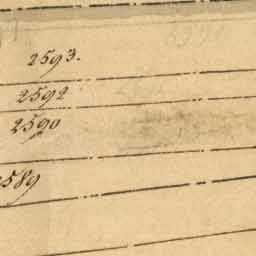 2593.
2592
2590
2589